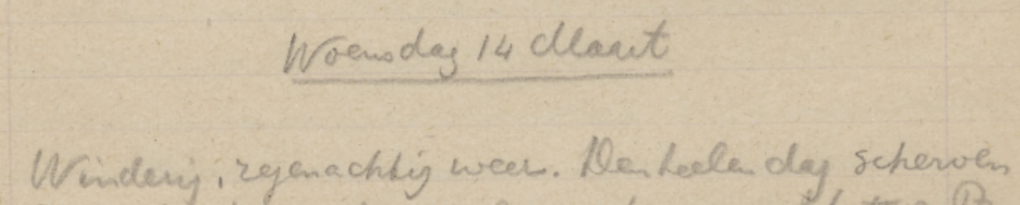 Woensdag 14 Maart
Winderig, regenachtig weer. Den heelen dag scherven